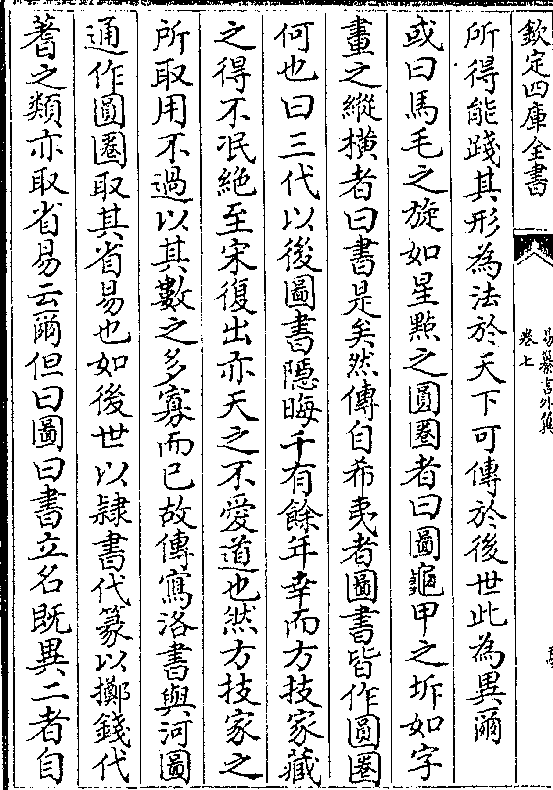 欽定四庫全書
易纂言外翼
卷七
所得能踐其形為法於天下可傳於後世此為異爾
或曰馬毛之旋如星點之圓圈者曰圖龜甲之坼如字
畫之縱橫者曰書是矣然傳自希夷者圖書皆作圓圈
何也曰三代以後圖書隱晦千有餘年幸而方技家藏
之得不泯絶至宋復出亦天之不愛道也然方技家之
所取用不過以其數之多寡而已故傳寫洛書與河圖
通作圓圈取其省易也如後世以隷書代篆以擲錢代
蓍之類亦取省易云爾但曰圖曰書立名既異二者自